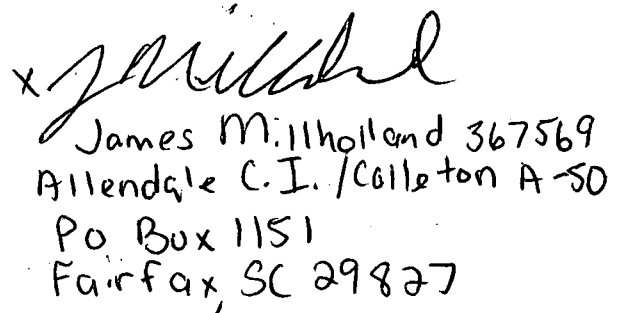 x J Millholland
James Millholland 367569
Allendale C.I. /Colleton A-50
Po Box 1151
Fairfax, SC 29827